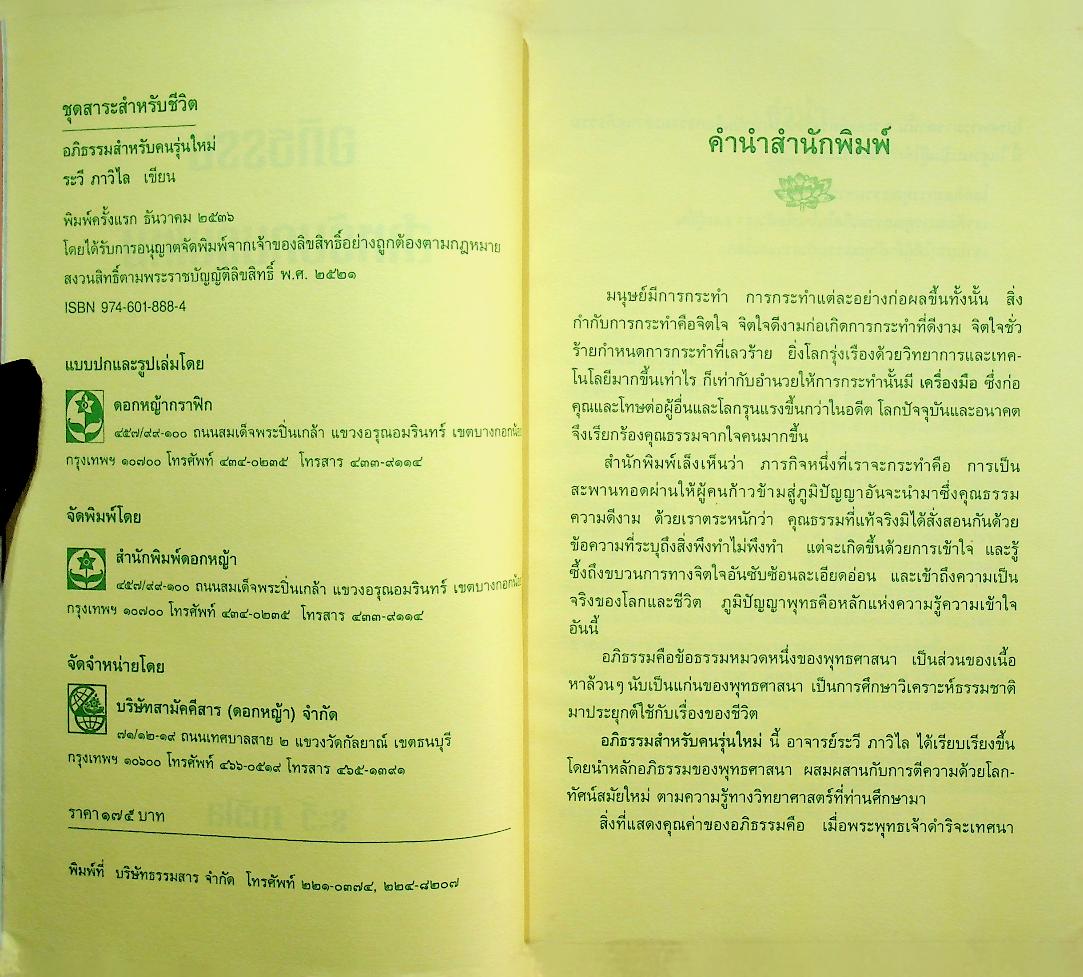 ชุดสาระสำหรับชีวิต
อภิธรรมสำหรับคนรุ่นใหม่
ระวี ภาวิไล เขียน
พิมพ์ครั้งแรก ธันวาคม ๒๕๓๖
โดยได้รับการอนุญาตจัดพิมพ์จากเจ้าของลิขสิทธิ์อย่างถูกต้องตามกฎหมาย
สงวนสิทธิ์ตามพระราชบัญญัติลิขสิทธิ์ พ.ศ. ๒๕๒๑
ISBN 974-601-888-4
แบบปกและรูปเล่มโดย
ดอกหญ้ากราฟิก
๔๕๗/๙๙-๑๐๐ ถนนสมเด็จพระปิ่นเกล้า แขวงอรุณอมรินทร์ เขตบางกอกน้อย
กรุงเทพฯ ๑๐๗๐๐ โทรศัพท์ ๔๓๔-๐๒๓๕ โทรสาร ๔๓๓-๙๑๑๔
จัดพิมพ์โดย
สำนักพิมพ์ดอกหญ้า
๔๕๗/๙๙-๑๐๐ ถนนสมเด็จพระปิ่นเกล้า แขวงอรุณอมรินทร์ เขตบางกอกน้อย
กรุงเทพฯ ๑๐๗๐๐ โทรศัพท์ ๔๓๔-๐๒๓๕ โทรสาร ๔๓๓-๙๑๑๔
จัดจำหน่ายโดย
บริษัทสามัคคีสาร (ดอกหญ้า) จำกัด
๗๑/๑๒-๑๙ ถนนเทศบาลสาย ๒ แขวงวัดกัลยาณ์ เขตธนบุรี
กรุงเทพฯ ๑๐๖๐๐ โทรศัพท์ ๔๖๖-๐๕๑๙ โทรสาร ๔๖๕-๑๓๙๑
ราคา ๑๗๕ บาท
พิมพ์ที่ บริษัทธรรมสาร จำกัด โทรศัพท์ ๒๒๑-๐๓๗๔, ๒๒๔-๘๒๐๗
คำนำสำนักพิมพ์
มนุษย์มีการกระทำ การกระทำแต่ละอย่างก่อผลขึ้นทั้งนั้น สิ่ง
กำกับการกระทำคือจิตใจ จิตใจดีงามก่อเกิดการกระทำที่ดีงาม จิตใจชั่ว
ร้ายกำหนดการกระทำที่เลวร้าย ยิ่งโลกรุ่งเรืองด้วยวิทยาการและเทค-
โนโลยีมากขึ้นเท่าไร ก็เท่ากับอำนวยให้การกระทำนั้นมี เครื่องมือ ซึ่งก่อ
คุณและโทษต่อผู้อื่นและโลกรุนแรงขึ้นกว่าในอดีต โลกปัจจุบันและอนาคต
จึงเรียกร้องคุณธรรมจากใจคนมากขึ้น
สำนักพิมพ์เล็งเห็นว่า ภารกิจหนึ่งที่เราจะกระทำคือ การเป็น
สะพานทอดผ่านให้ผู้คนก้าวข้ามสู่ภูมิปัญญาอันจะนำมาซึ่งคุณธรรม
ความดีงาม ด้วยเราตระหนักว่า คุณธรรมที่แท้จริงมิได้สั่งสอนกันด้วย
ข้อความที่ระบุถึงสิ่งพึงทำไม่พึงทำ แต่จะเกิดขึ้นด้วยการเข้าใจ และรู้
ซึ้งถึงขบวนการทางจิตใจอันซับซ้อนละเอียดอ่อน และเข้าถึงความเป็น
จริงของโลกและชีวิต ภูมิปัญญาพุทธคือหลักแห่งความรู้ความเข้าใจ
อันนี้
อภิธรรมคือข้อธรรมหมวดหนึ่งของพุทธศาสนา เป็นส่วนของเนื้อ
หาล้วนๆ นับเป็นแก่นของพุทธศาสนา เป็นการศึกษาวิเคราะห์ธรรมชาติ
มาประยุกต์ใช้กับเรื่องของชีวิต
อภิธรรมสำหรับคนรุ่นใหม่ นี้ อาจารย์ระวี ภาวิไล ได้เรียบเรียงขึ้น
โดยนำหลักอภิธรรมของพุทธศาสนา ผสมผสานกับการตีความด้วยโลก-
ทัศน์สมัยใหม่ ตามความรู้ทางวิทยาศาสตร์ที่ท่านศึกษามา
สิ่งที่แสดงคุณค่าของอภิธรรมคือ เมื่อพระพุทธเจ้าดำริจะเทศนา